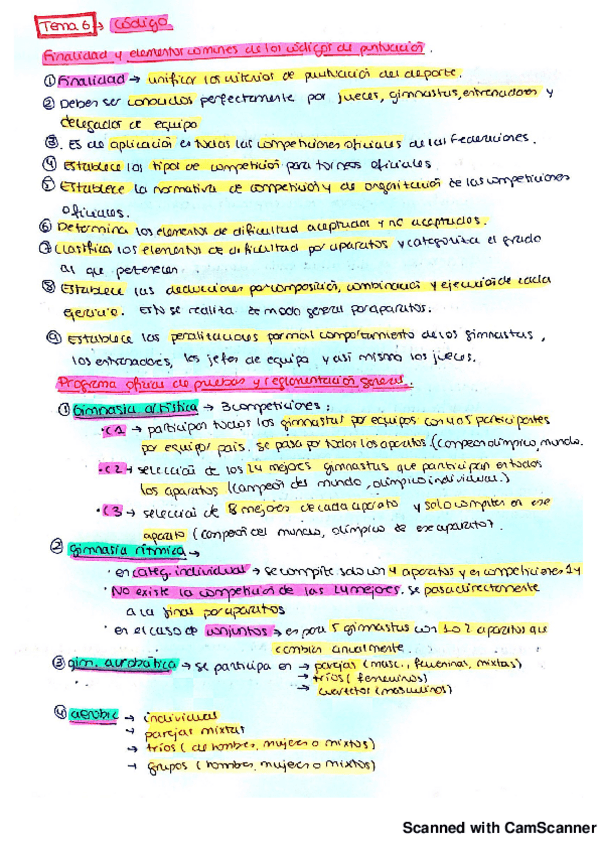 Tema 6 → código.
Finalidad y elementos comunes de los códigos de puntuación.
① Finalidad → unificar los criterios de puntuación del deporte.
② Deben ser conocidos perfectamente por jueces, gimnastas, entrenadores y
delegados de equipo
③. Es de aplicación en todas las competiciones oficiales de las Federaciones.
④ Establece los tipos de competición para torneos oficiales.
⑤ Establece la normativa de competición y de organización de las competiciones
oficiales.
⑥ Determina los elementos de dificultad aceptados y no aceptados.
⑦ Clasifica los elementos de dificultad por aparatos y categoriza el grado
al que pertenecen.
⑧ Establece las deducciones por composición, combinación y ejecución de cada
ejercicio. Esto se realiza de modo general por aparatos.
⑨ Establece las penalizaciones por mal comportamiento de los gimnastas,
los entrenadores, los jefes de equipo y así mismo los jueces.
Programa oficial de pruebas y reglamentación general.
① Gimnasia artística → 3 competiciones:
· C1 → participan todos los gimnastas por equipos con 4 o 5 participantes
por equipo/ país. se pasa por todos los aparatos. (campeón olímpico, mundo.
· C2 → selección de los 24 mejores gimnastas que participan en todos
los aparatos (campeón del mundo, olímpico individual.)
· C3 → selección de 8 mejores de cada aparato y solo compiten en ese
aparato (campeón del mundo, olímpico de ese aparato).
② gimnasia rítmica →
· en categ. individual → se compite solo con 4 aparatos y en competiciones 1 y
· No existe la competición de las 24 mejores. se pasa directamente
a la final por aparatos
· en el caso de conjuntos → es para 5 gimnastas con 1 o 2 aparatos que
cambian anualmente.
③ gim. acrobática → se participa en → parejas (masc., femeninas, mixtas)
→ tríos (femeninos)
→ cuartetos (masculinos)
④ aerobic → individual
→ parejas mixtas
→ tríos (de hombres, mujeres o mixtos)
→ grupos (hombres, mujeres o mixtos)
Scanned with CamScanner